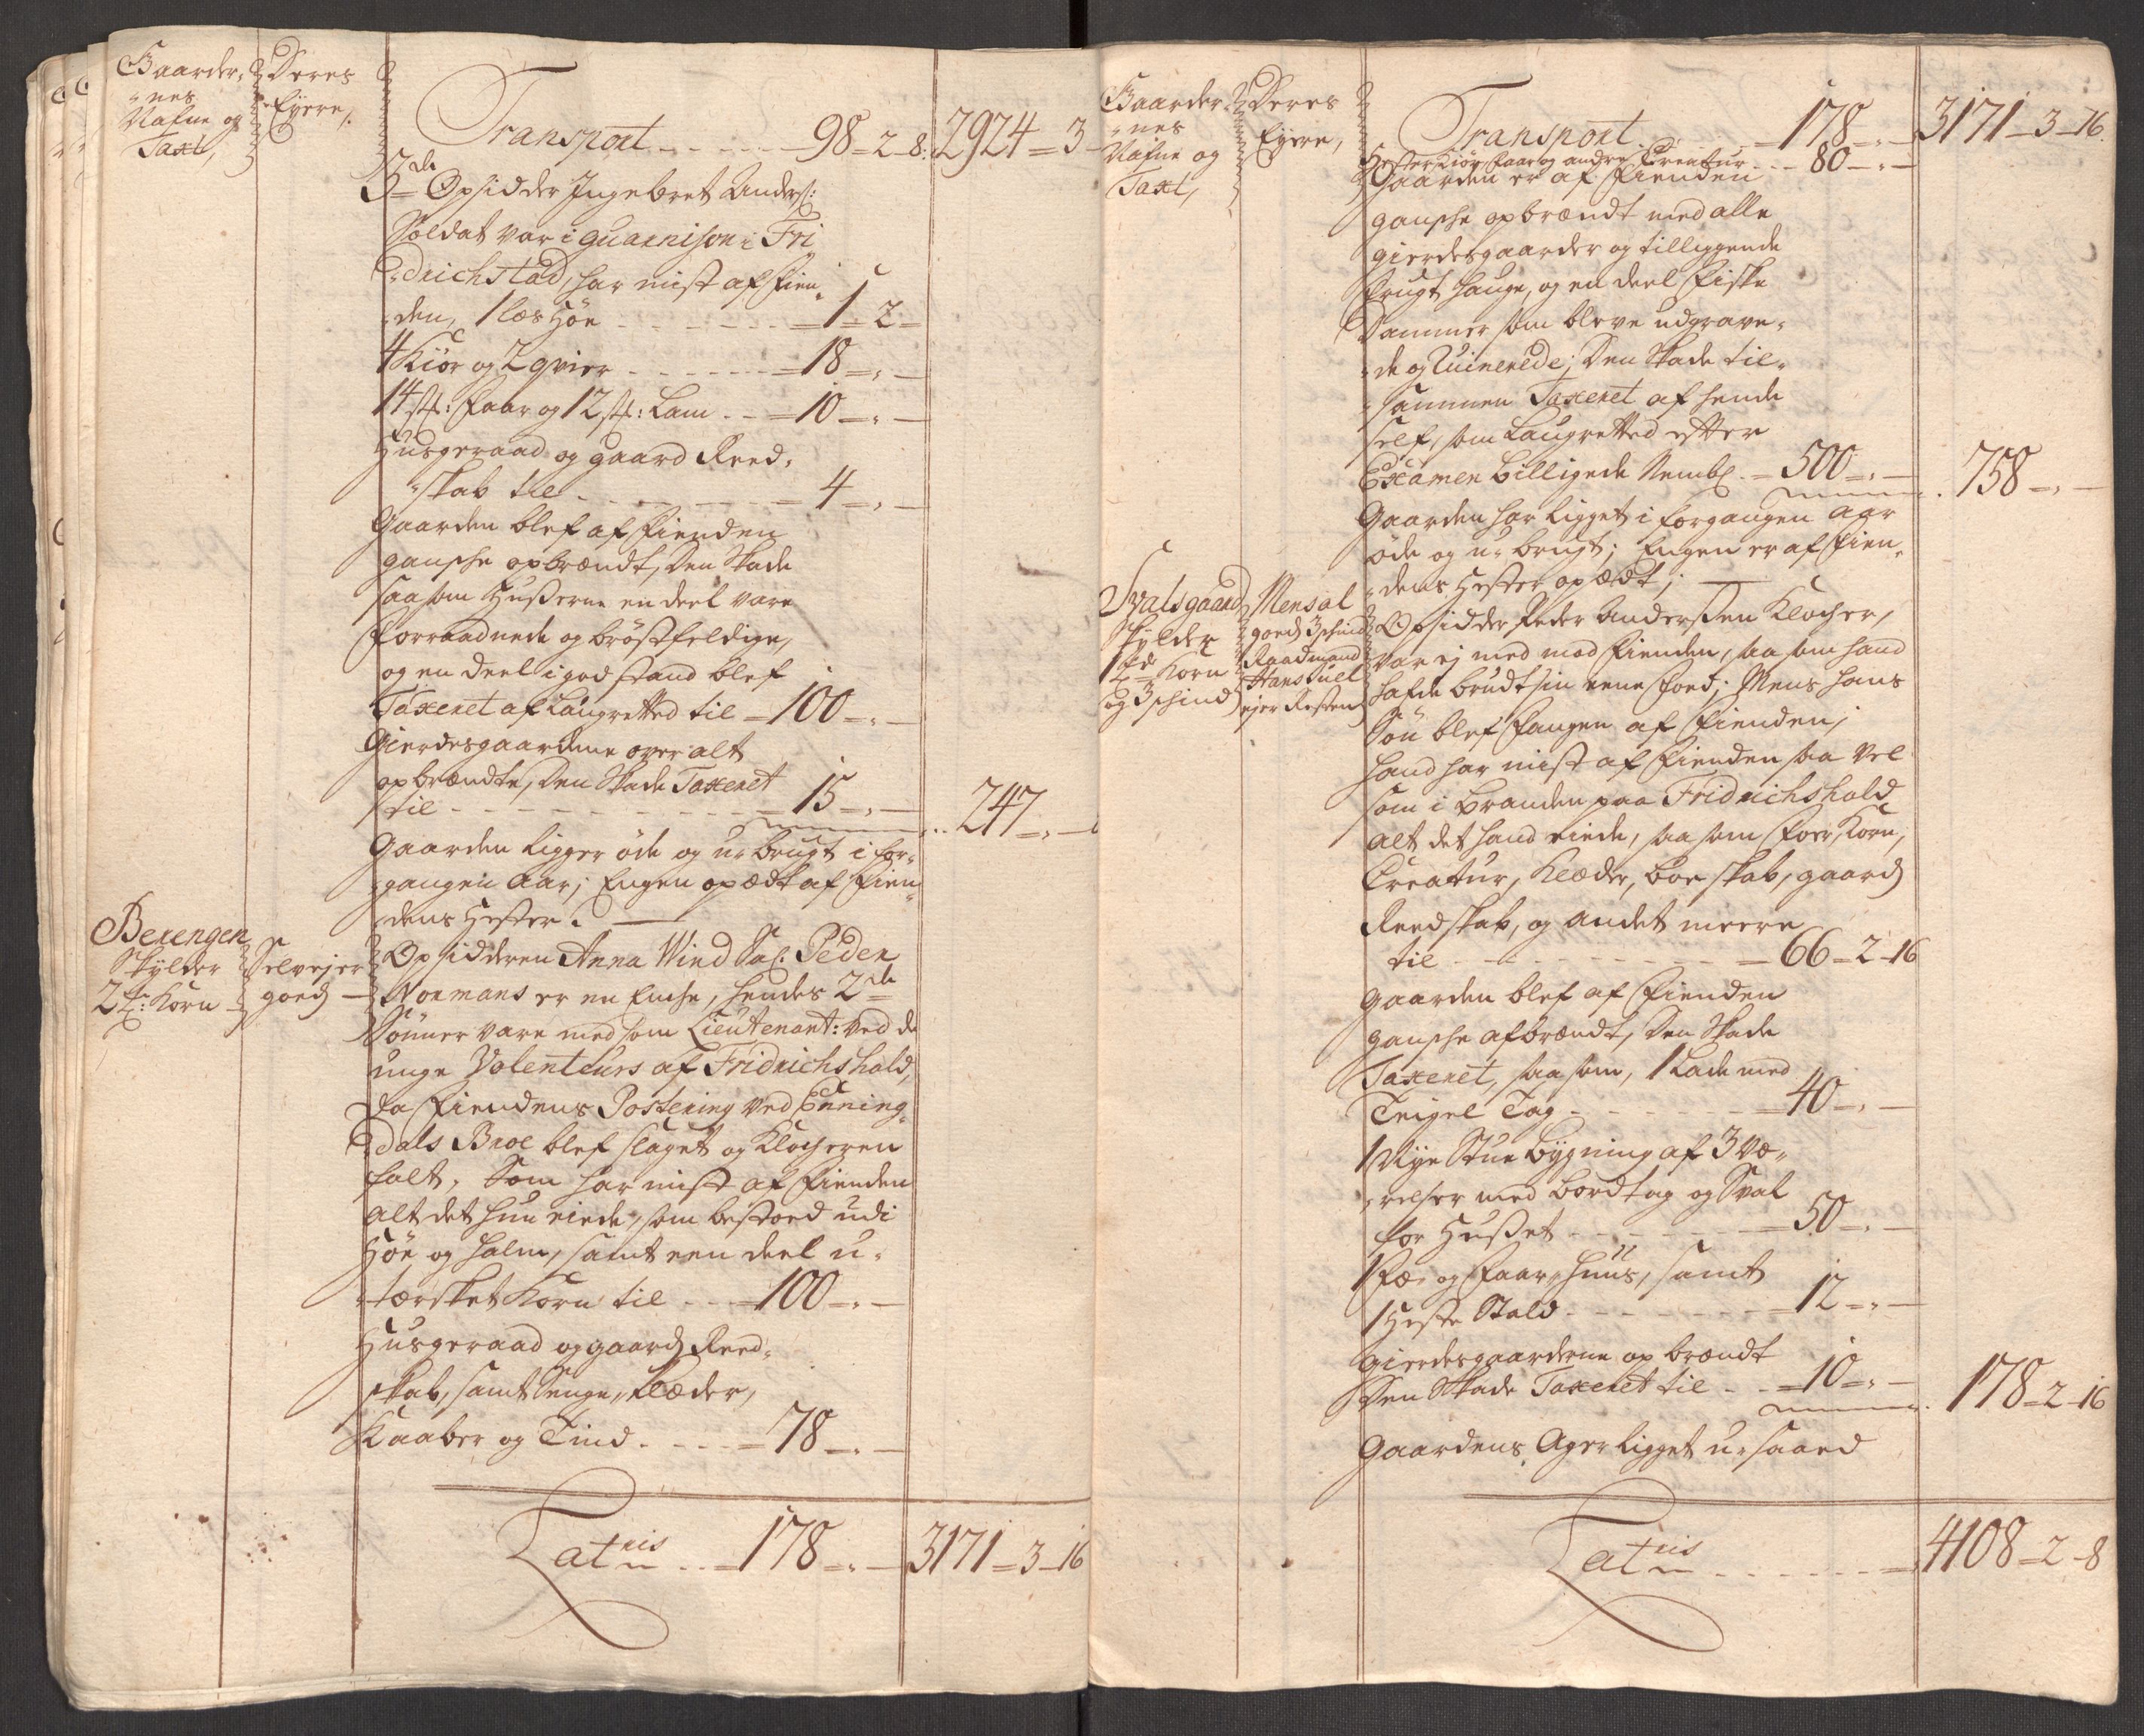 Gaarder-
nes
Nafne og
Taxt,
Deres
Eyere,
Transport - - - - 98 - 2 - 8. 2924 = 3 -
3de Opsidder Ingebret Anders:
Soldat var i guarnison i Fri
drichstad, har mist af Fien-
den, 1 læs Höe - - - - - - = 1 = 2 =
4 Kiör og 2 qvier - - - - - = 18 = „ -
14 st: Faar og 12 st: Lam - - = 10 - „ -
Husgeraad og gaard Reed-
skab til - - - - - - = 4 = „ -
Gaarden blef af Fienden
gansche opbrændt, Den Skade
saasom Hußerne en deel vare
forraadnede og bröstfeldige,
og en deel i god stand blef
Taxeret af Laugretted til = 100 = „ -
Gierdesgaardene over alt
opbrændte, Den Skade Taxeret
til - - - - - - - - = 15 = „ - 247 = „ -
Gaarden ligger öde og u-brugt i for-
gangen Aar; Engen opædt af Fien-
dens Hester.
Berengen
Skylder
2 t: Korn
Selvejer
goeds
Opsidderen Anna Wind Sal: Peder
Normans er en Enche, hendes 2de
Sönner vare med som Lieutenant: ved de
unge Volenteurs af Fridrichshald,
da Fiendens Postering ved Enning-
dals Broe blef slaget og Klocheren
falt, Som har mist af Fienden
alt det hun eiede, som bestoed udi
Höe og halm, samt een deel u-
tærsket Korn til - - = 100 = „ -
Husgeraad og gaards Reed-
skab, samt Senge, Klæder,
Kaaber og Tind - - - - = 78 = „ -
Lateris - - = 178 = „ - 3171 = 3 - 16
Gaarder-
nes
Nafne og
Taxt,
Deres
Eyere,
Transport - - - = 178 = „ - 3171 - 3 - 16.
Hester Kiör Faar og andre Creatur - - 80 - „ -
Gaarden er af Fienden
gansche opbrændt med alle
gierdesgaarder og tilliggende
Frugt hauge, og en deel Fiske
Dammer som bleve udgrave-
de og Ruinerede; Den Skade til-
sammen Taxeret af hende
self, som Laugretted efter
Examen billigede Nembl. - = 500 = „ - 758 = „ -
Gaarden har ligget i forgangen Aar
öde og u-brugt; Engen er af Fien-
dens Hester opædt;
Svalsgaard
Skylder
1 td Korn
og 3 schind
Mensal
goeds 3 schind
Raadmand
Hans Juel
ejer Resten
Opsidder Peder Anderßen Klocher,
var ej med mod Fienden, saasom hand
hafde brudt sin eene foed; Mens hans
Sön blef fangen af Fienden;
hand har mist af Fienden saa vel
som i Branden paa Fridrichshald
alt det hand eiede, saasom foer, Korn,
Creatur, Klæder, boe skab, gaards
Reedskab, og andet meere
til - - - - - - - - = 66 - 2 - 16
Gaarden blef af Fienden
gansche afbrændt, Den Skade
Taxeret, saasom, 1 Lade med
Teigel Tag - - - - - = 40 = „ -
1 Nye Stue bygning af 3 væ-
relser med bordtag og Sval
for Hußet - - - - - = 50 = „ -
1 Fæ- og Faar-huus, samt
1 Heste Stald - - - - - = 12 = „ -
Gierdesgaarderne op brændt
Den Skade Taxeret til - - = 10 = „ - 178 = 2 - 16
Gaardens Ager ligget u-saaed
Lateris - - - - - = 4108 = 2 - 8